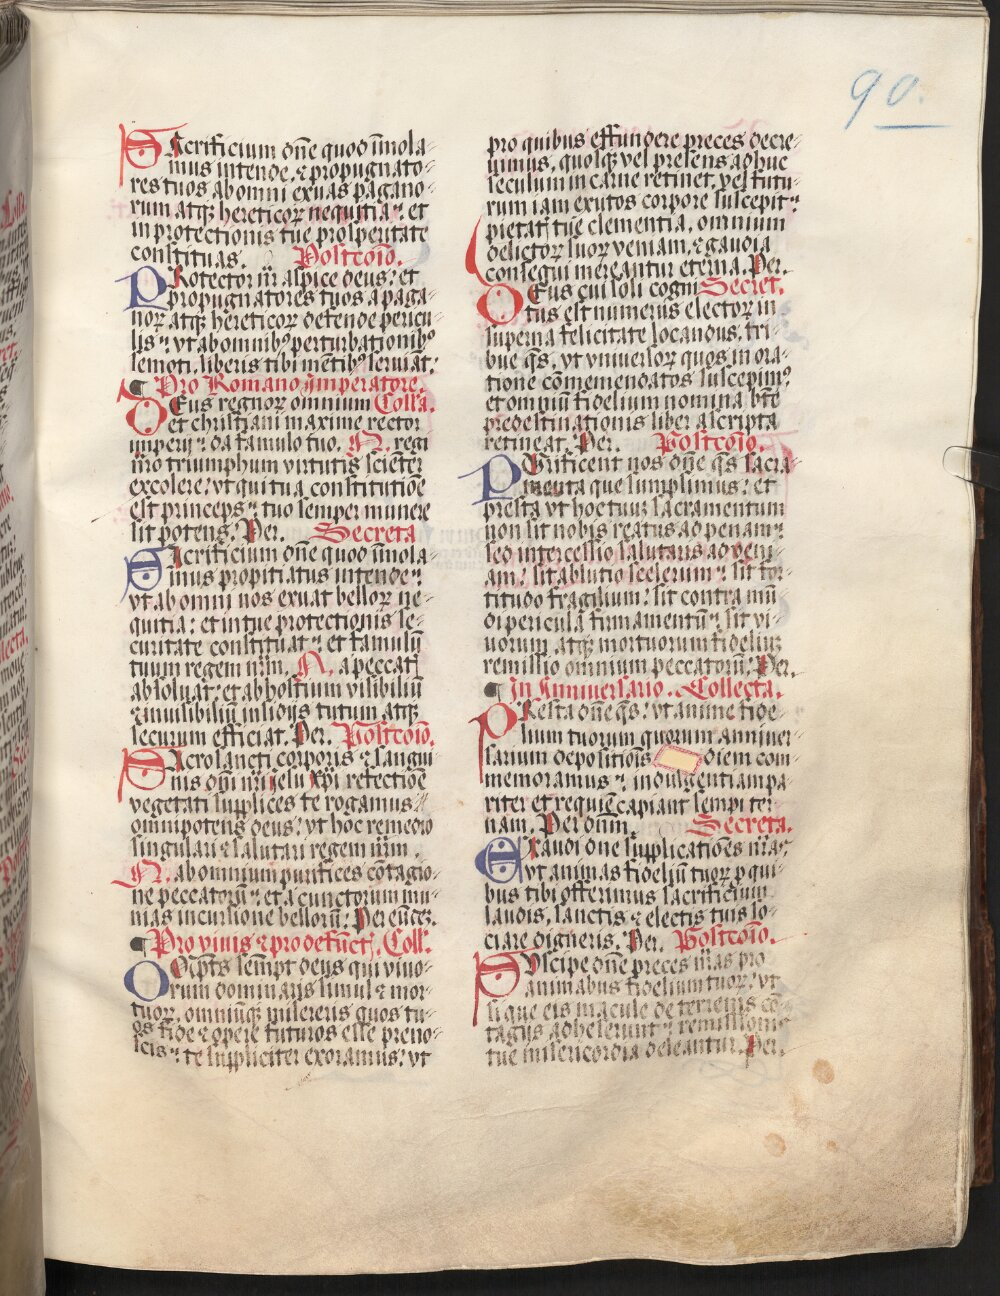 90.
SAcrificium dn̄e quod īmola-
mus intende. ⁊ propugnato-
res tuos ab omni exuas pagano-
rum atqꝫ hereticoꝝ nequitia: et
in protectionis tue prosperitate
constituas. Postcōio.
PRotector nr̄ aspice deus: et
propugnatores tuos a paga-
noꝝ atqꝫ hereticoꝝ defende pericu-
lis: vt ab omnibꝰ perturbationibꝰ
semoti. liberis tibi mētibꝰ seruiāt.
¶ Pro Romano ymperatore.
DEus regnoꝝ omnium Coll'a.
et christiani maxime rector
imperij: da famulo tuo. N. regi
nr̄o triumphum virtutis scienter
excolere: vt qui tua constitutiōe
est princeps: tuo semper munere
sit potens. Per. Secreta
SAcrificium dn̄e quod īmola-
mus propitiatus intende:
vt ab omni nos exuat belloꝝ ne-
quitia: et in tue protectionis se-
curitate constituat: et famulū
tuum regem nr̄m. N. a peccatꝭ
absoluat: et ab hostium visibiliū
⁊ inuisibiliū insidijs tutum atqꝫ
securum efficiat. Per. Postcōio.
SAcrosancti corporis ⁊ sangui-
nis dn̄i nr̄i jesu xp̄i refectiōe
vegetati supplices te rogamus
omnipotens deus: vt hoc remedio
singulari ⁊ salutari regem nr̄m.
N. ab omnium purifices cōtagio-
ne peccatorū: et a cunctorum mu-
nias incursione bellorū: Per eūdeꝫ.
¶ Pro viuis ⁊ pro defūctꝭ. Coll'.
OM̄ipt̄s semp̄t deus qui viuo-
rum dominaris simul ⁊ mor-
tuoꝝ. omniūqꝫ misereris quos tu-
os fide ⁊ opere futuros esse preno-
scis: te suppliciter exoramus: vt
pro quibus effundere preces decre-
uimus. quosqꝫ vel presens adhuc
seculum in carne retinet. vel futu-
rum iam exutos corpore suscepit:
pietatꝭ tue clementia. omnium
delictoꝝ suoꝝ veniam. ⁊ gaudia
consequi mereantur eterna. Per.
DEus cui soli cogni- Secret.
tus est numerus electoꝝ in
superna felicitate locandus. tri-
bue q̄s. vt vniuersoꝝ quos in ora-
tione cōmemendatos suscepimꝰ
et omniū fidelium nomina btē
predestinationis liber ascripta
retineat. Per. Postcōio.
PUrificent nos dn̄e q̄s sacra-
menta que sumpsimus: et
presta vt hoc tuū sacramentum
non sit nobis reatus ad penam:
sed intercessio salutaris ad veni-
am: sit ablutio scelerum: sit for-
titudo fragilium: sit contra mū-
di pericula firmamentū: sit vi-
uorum atqꝫ mortuorum fideliuꝫ
remissio omnium peccatorū. Per.
¶ In Anniuersario. Collecta.
PResta dn̄e q̄s: vt anime fide-
lium tuorum quorum anniuer-
sarium depositionis diem com-
memoramus: indulgentiam pa-
riter et requiē capiant sempiter-
nam. Per dn̄m. Secreta.
EXaudi dn̄e supplicatiōes nr̄as
vt animas fideliū tuoꝝ p̄ qui-
bus tibi offerimus sacrificium
laudis. sanctis ⁊ electis tuis so-
ciare digneris. Per. Postcōio.
SVscipe dn̄e preces nr̄as pro
animabus fidelium tuoꝝ: vt
si que eis macule de terrenis cō-
tagijs adheserunt: remissionis
tue misericordia deleantur. Per.